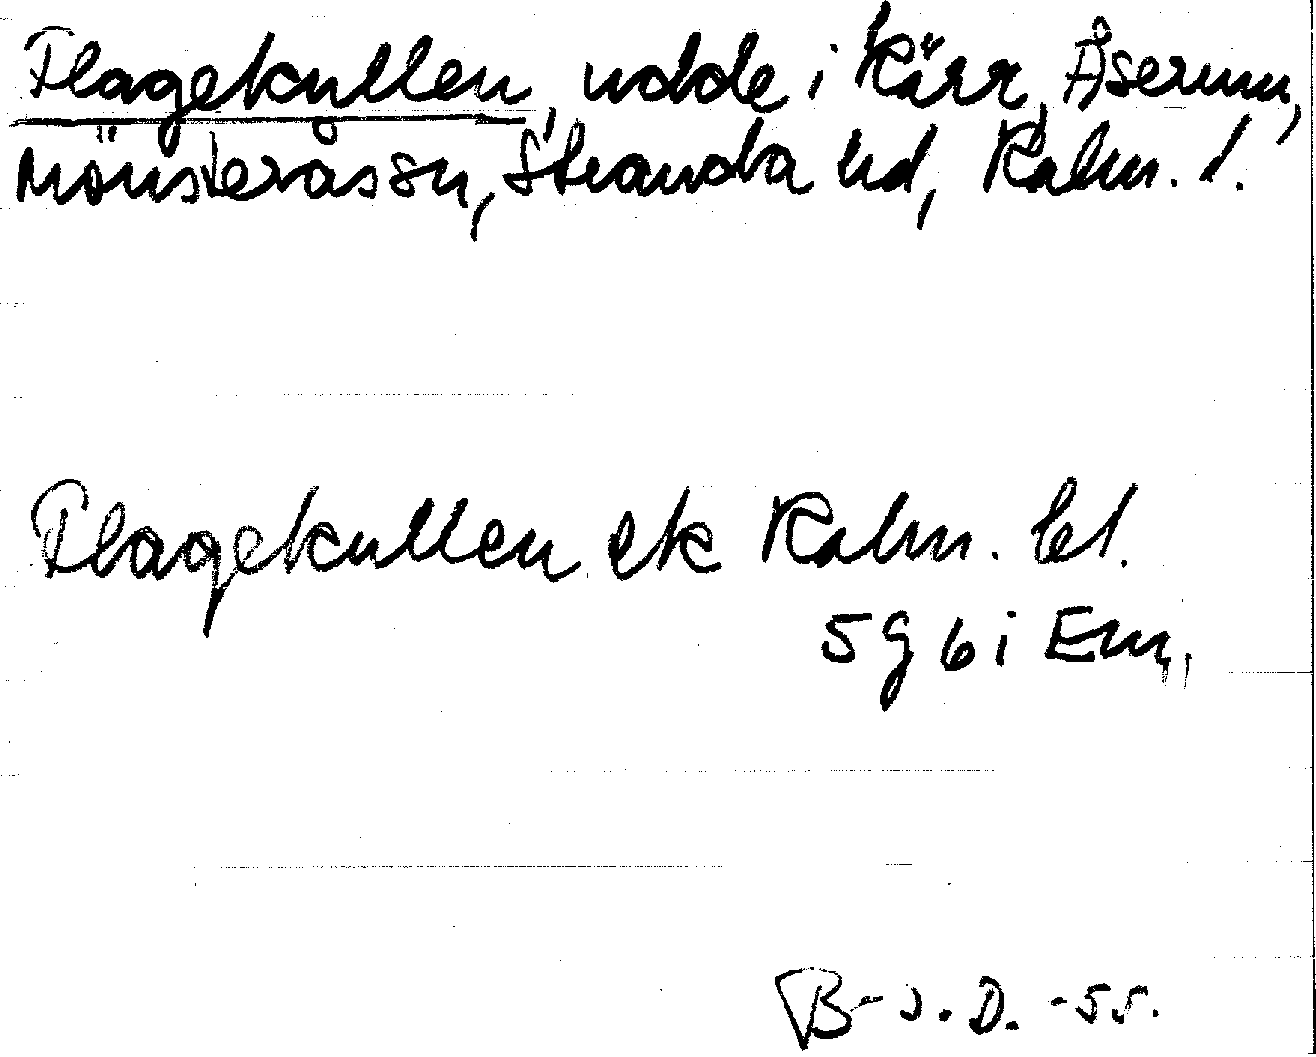 Flagekullen, udde i kärr, Åserum,
Mönsterås sn, Stranda hd, Kalm. l.
Flagekullen ek Kalm. bl.
5 g 6 i Em,
B-J.D. -55.